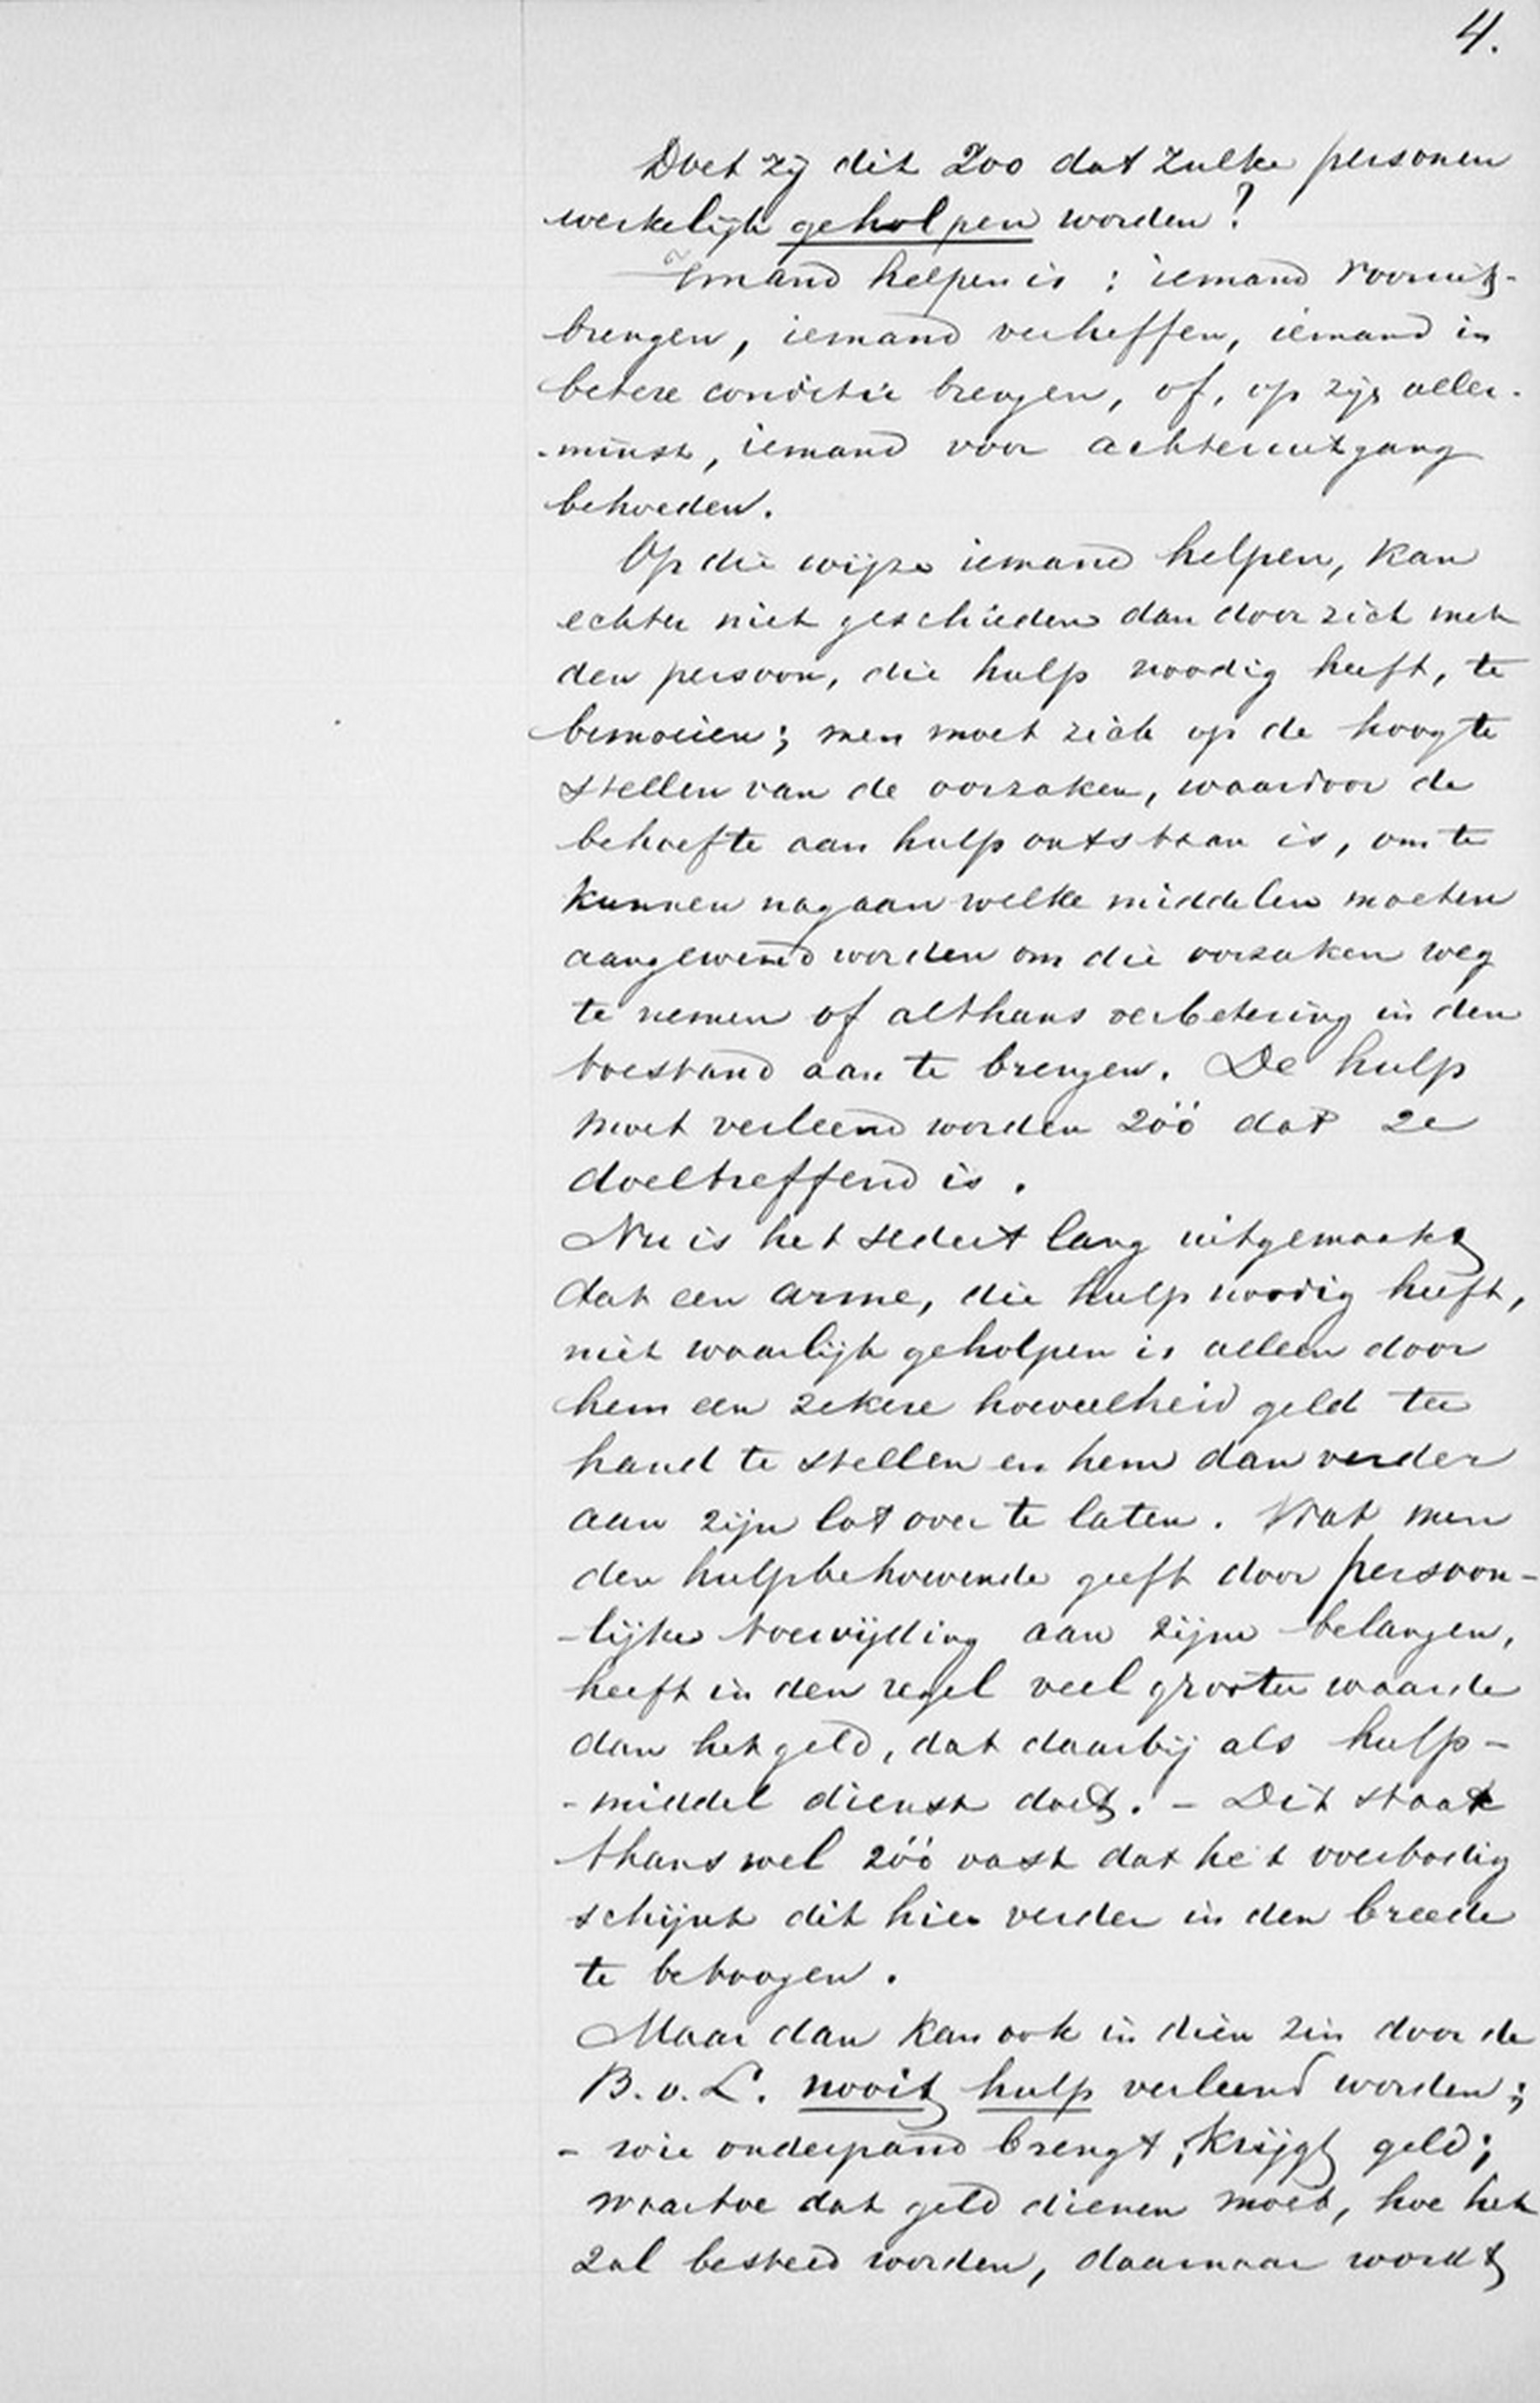 4.
Doet zij dit zoo dat zulke personen
werkelijk geholpen worden?
Iemand helpen is: iemand vooruit-
brengen, iemand verheffen, iemand in
betere conditie brengen, of, op zijn aller-
-minst, iemand voor achteruitgang
behoeden.
Op die wijze iemand helpen, kan
echter niet geschieden dan door zich met
den persoon, die hulp noodig heeft, te
bemoeien; men moet zich op de hoogte
stellen van de oorzaken, waardoor de
behoefte aan hulp ontstaan is, om te
kunnen nagaan welke middelen moeten
aangewend worden om die oorzaken weg
te nemen of althans verbetering in den
toestand aan te brengen. De hulp
moet verleend worden zóó dat ze
doeltreffend is.
Nu is het sedert lang uitgemaakt
dat een arme, die hulp noodig heeft,
niet waarlijk geholpen is alleen door
hem een zekere hoeveelheid geld ter
hand te stellen en hem dan verder
aan zijn lot over te laten. Wat men
den hulpbehoevende geeft door persoon-
-lijke toewijding aan zijne belangen,
heeft in den regel veel grooter waarde
dan het geld, dat daarbij als hulp-
-middel dienst doet. - Dit staat
thans wel zóó vast dat het overbodig
schijnt dit hier verder in den breede
te betoogen.
Maar dan kan ook in dien zin door de
B. v. L. nooit hulp verleend worden;
- wie onderpand brengt, krijgt geld;
waartoe dat geld dienen moet, hoe het
zal besteed worden, daarnaar wordt